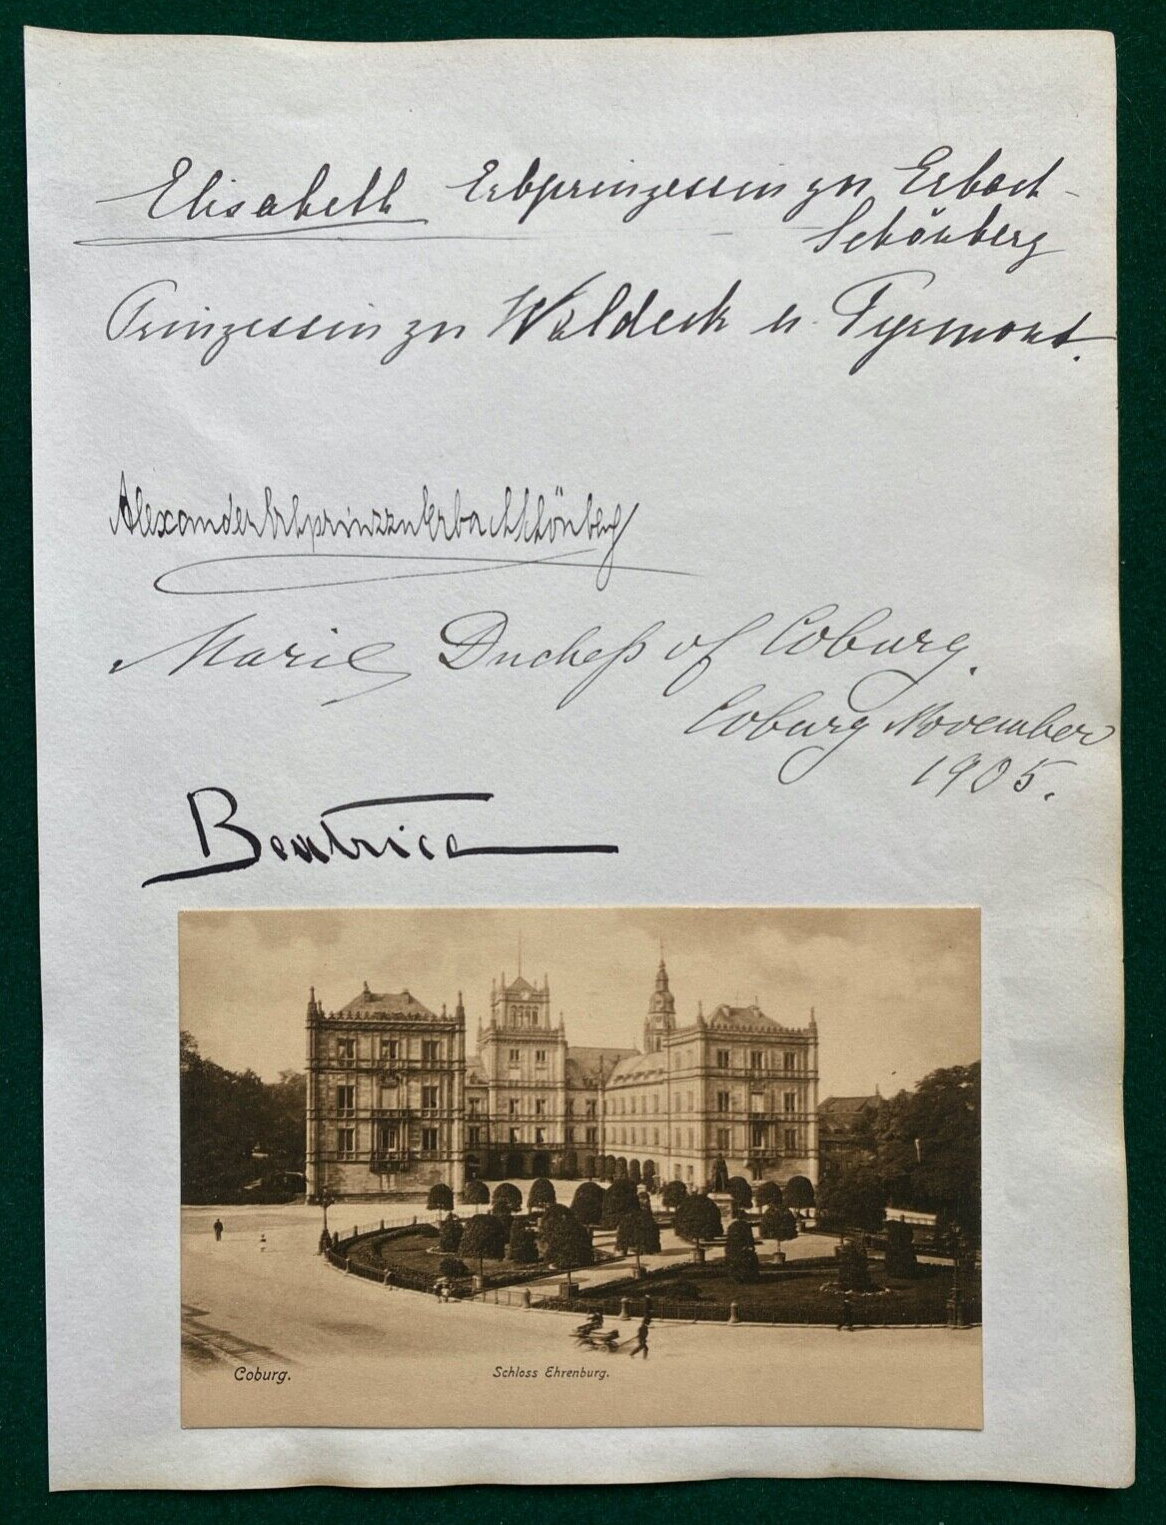 Elisabeth Erbprinzessin zu Erbach-
Schönberg
Prinzessin zu Waldeck u. Pyrmont.
Alexander Erbprinz zu Erbach Schönberg
Marie Duchess of Coburg.
Coburg November
1905.
Beatrice
Coburg.
Schloss Ehrenburg.